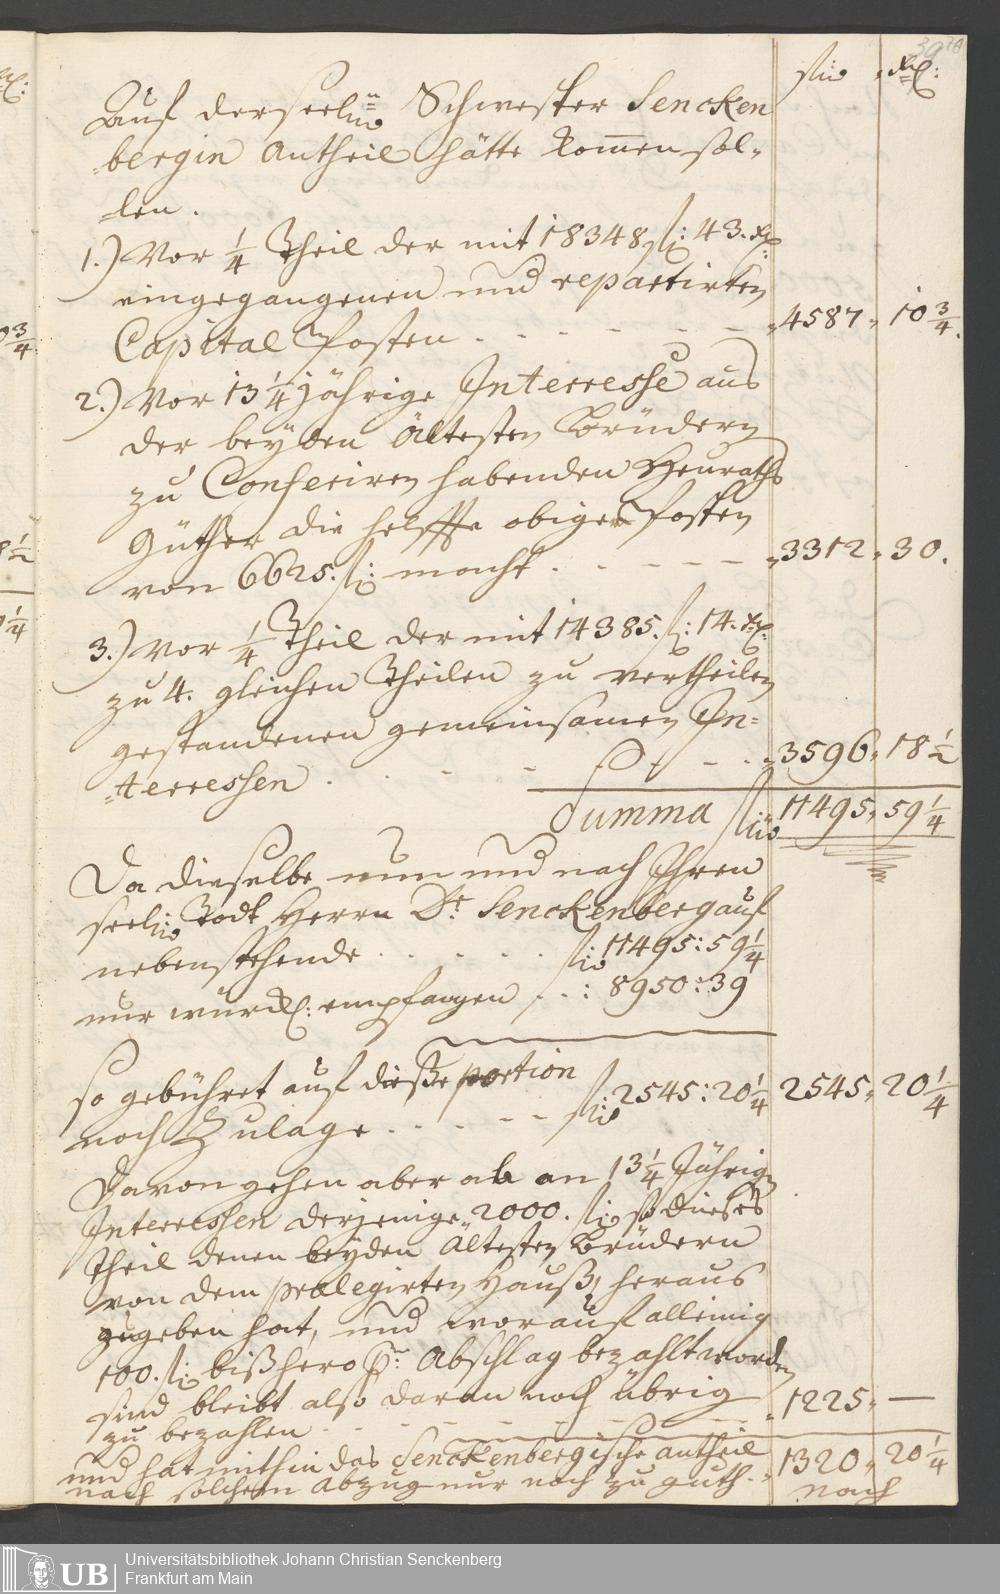 fl. Xr:
Auf der seel. Schwester Sencken
bergin Antheil hätte kom̄en sol-
len.
1.) Vor 1/4 Theil der mit 18348 fl: 43. Xr
eingegangenen und repartirten
Capital Posten . - - - - - 4587 " 10 3/4.
2.) Vor 13 1/4 jährige Interresse aus
der beyden Ältesten Brüdern
zu Conferiren habenden Heuraths
Güther die helffte obiger Posten
von 6625. fl: macht . - - - - " 3312 " 30.
3.) Vor 1/4 Theil der mit 14385. fl: 14. Xr:
zu 4. gleichen Theilen zu vertheilen
gestandenen gemeinsamen In=
=terressen . - - - - - " 3596 " 18 1/2
Summa fl. 11495 " 59 1/4
Da dieselbe nun und nach Ihren
seel. Todt Herrn Dr. Senckenberg auf
nebenstehende . . . . . fl. 11495: 59 1/4
nur würckl: empfangen . . : 8950: 39
So gebühret auf dieße portion
noch Zulage . - - - - fl. 2545: 20 1/4 2545 " 20 1/4
Davon gehen aber ab an 13 1/4 Jährige
Interressen derjenige 2000. fl: so dieses
Theil denen beyden Ältesten Brüdern
von dem prælegirten Hauß, heraus
zugeben hat, und worauf alleinig
100. fl: bißhero pr. Abschlag bezahlt worden
sind bleibt also daran noch übrig
zu bezahlen . - - - - - " 1225 " —
und hat mithin das Senckenbergische Antheil
nach solchem Abzug nur noch zu guth - " 1320 " 20 1/4
nach
UB
Universitätsbibliothek Johann Christian Senckenberg
Frankfurt am Main